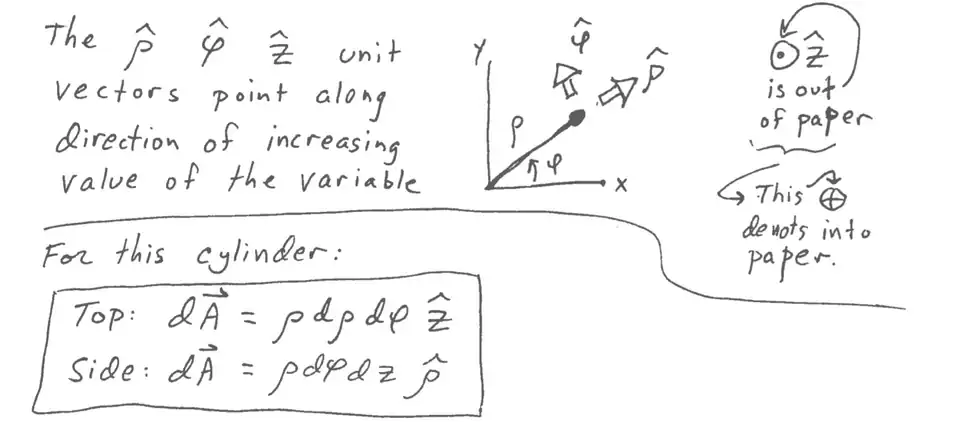 The ρ̂ φ̂ ẑ unit
vectors point along
direction of increasing
value of the variable
y
φ̂
ρ̂
ρ
φ
x
⊙ ẑ
is out
of paper
This ⊕
denots into
paper.
For this cylinder:
Top: dA⃗ = ρ dρ dφ ẑ
Side: dA⃗ = ρ dφ dz ρ̂